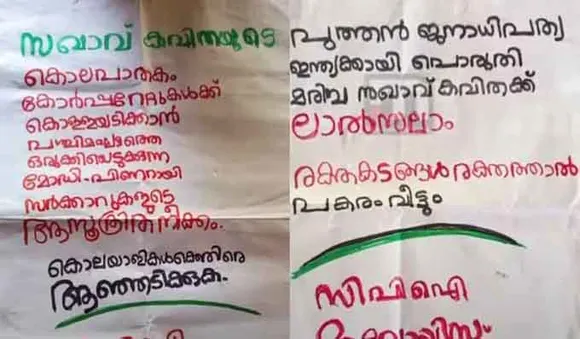 സഖാവ് കവിതയുടെ
കൊലപാതകം
കോർപ്പറേറ്റുകൾക്ക്
കൊള്ളയടിക്കാൻ
പശ്ചിമഘട്ടത്തെ
ഒരുക്കിയെടുക്കുന്ന
മോഡി-പിണറായി
സർക്കാറുകളുടെ
ആസൂത്രിത നീക്കം.
കൊലയാളികൾക്കെതിരെ
ആഞ്ഞടിക്കുക.
പുത്തൻ ജനാധിപത്യ
ഇന്ത്യക്കായി പൊരുതി
മരിച്ച സഖാവ് കവിതക്ക്
ലാൽസലാം
രക്തകടങ്ങൾ രക്തത്താൽ
പകരം വീട്ടും
സിപിഐ